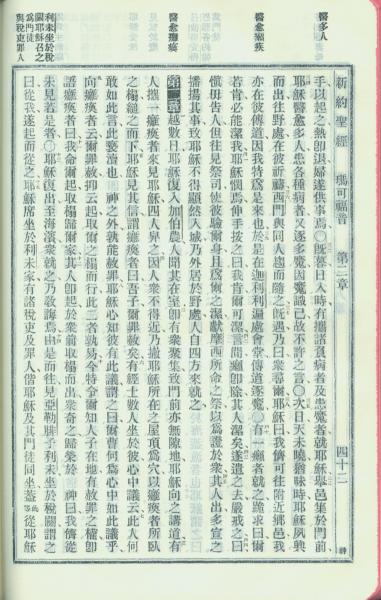 醫多人
醫愈癩疾
醫愈癱瘓
利未坐於稅
關耶穌召之
爲門徒
與稅吏罪人
新約聖經 馬可福音 第二章 四十二
手以起之熱卽退婦遂供事焉○旣暮日入時有攜諸負病者及患魔者就耶穌舉邑集於門前
耶穌醫愈多人患各種病者又逐多魔因魔識己故不許之言○次日天未曉昧時耶穌夙興
而出往野處在彼祈禱西門與同人追而隨之旣遇乃曰衆尋爾耶穌曰我儕可往附近鄉邑我
亦在彼傳道因我特爲是來也於是在迦利利遍處會堂傳道逐魔○有一癩者就之跪求曰爾
若肯必能潔我耶穌憫焉伸手按之曰我肯爾可潔言間癩卽除其人潔矣遂遣之去嚴戒之曰
愼毋告人但往見祭司使彼驗爾身且爲爾之潔獻摩西所命之祭以爲證於衆其人出多宣之
播揚其事致耶穌不得顯然入城乃外居於野處人自四方來就之
第二章 越數日耶穌復入加伯農人聞其在室卽有衆集致門前亦無隙地耶穌向之講道有
人攜一癱瘓者來見耶穌四人舁之因人衆不得近乃撤耶穌所在之屋頂爲穴以癱瘓者所臥
之榻縋之而下耶穌見其信謂癱瘓者曰吾子爾罪赦矣有經士數人坐於彼心中議云此人何
敢如此言此褻瀆也 神之外孰能赦罪耶穌心知彼有此議謂之曰爾曹何爲心中如此議乎
向癱瘓者云爾罪赦抑云起取爾之榻而行此二者孰易今特令爾知人子在地有赦罪之權卽
語癱瘓者曰我命爾起取榻歸爾家其人卽起於衆前取榻而出衆奇之歸榮於 神曰我儕從
未見若是者○耶穌復出至海濱衆就之乃敎誨焉由是而往見亞勒腓子利未坐於稅關謂之
曰從我遂起而從之耶穌席坐於利未家有諸稅吏及罪人偕耶穌及其門徒同坐蓋從耶穌